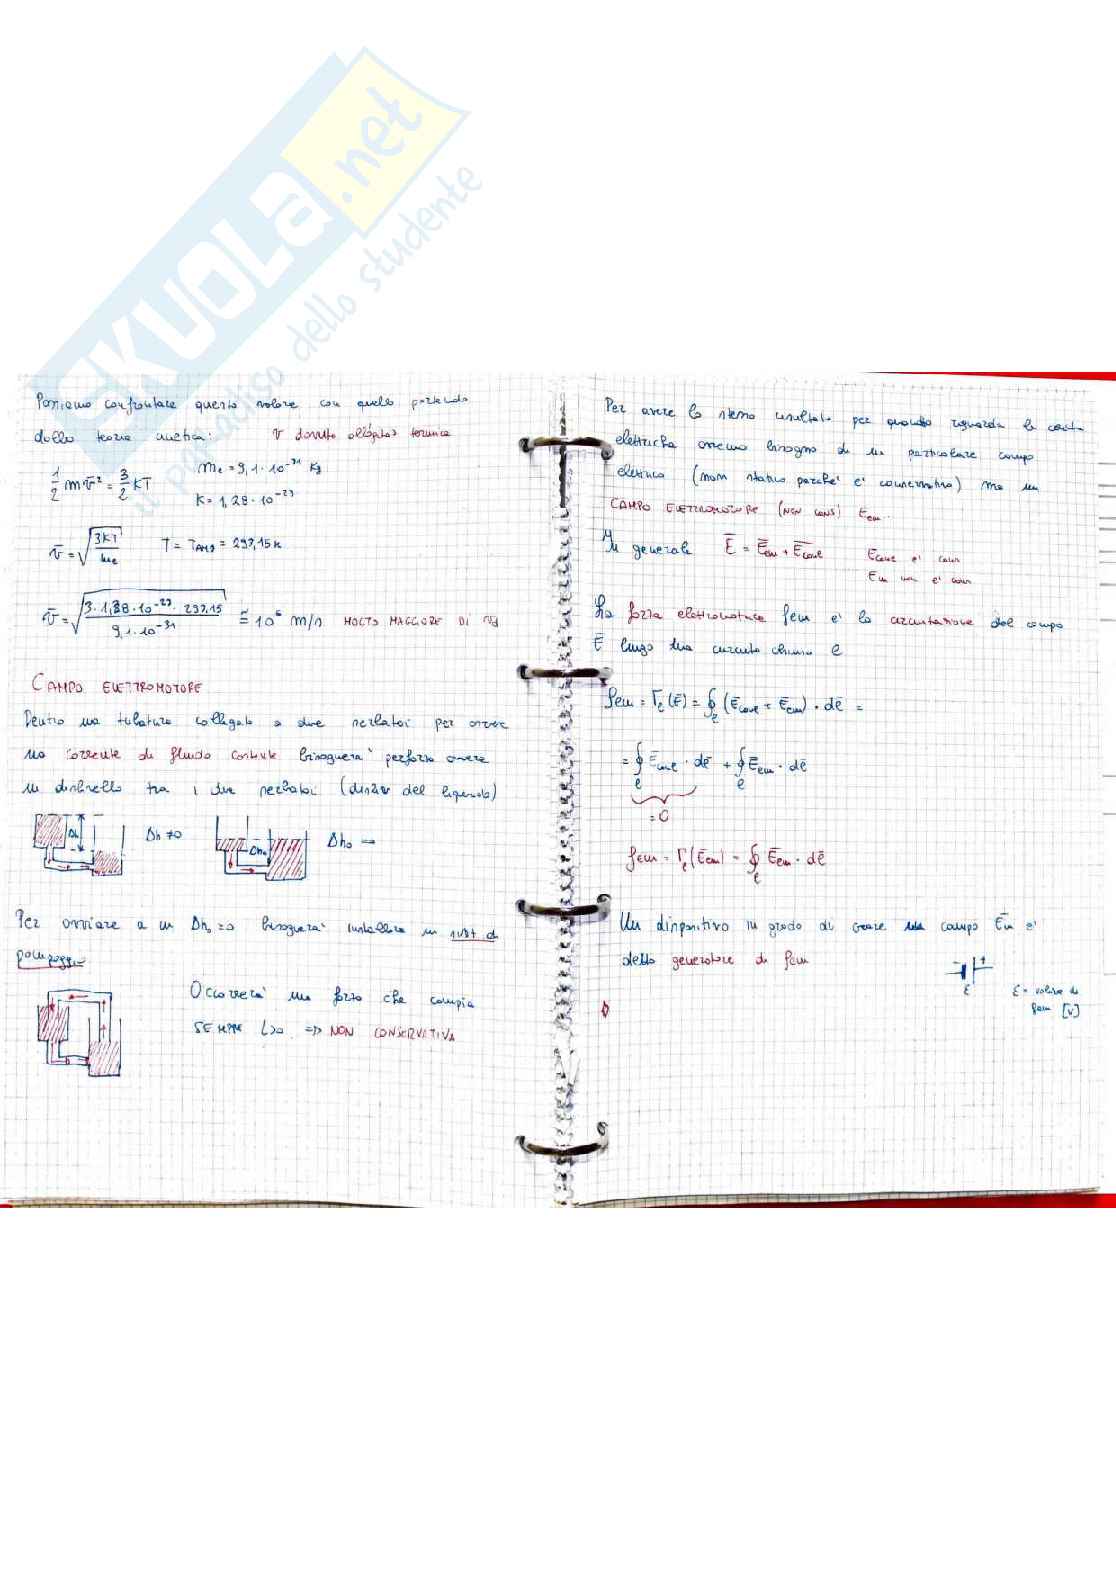 SKUOLA.net
il paradiso dello studente
Possiamo confrontare questo valore con quello partendo
dalla teoria cinetica: v dovuto all'agitaz termica
1/2 m v̄² = 3/2 KT
me = 9,1 · 10⁻³¹ Kg
K = 1,28 · 10⁻²³
v̄ = √(3KT/me) T = TAMB = 293,15 K
v̄ = √(3 · 1,38 · 10⁻²³ · 293,15 / 9,1 · 10⁻³¹) ≅ 10⁶ m/s MOLTO MAGGIORE DI vd
CAMPO ELETTROMOTORE
Dentro una tubatura collegata a due serbatoi per avere
una corrente di fluido costante bisognerà per forza avere
un dislivello tra i due serbatoi (disliv del liquido)
Δh Δh ≠ 0 Δh₀ Δh₀ =
Per ovviare a un Δh₀ = 0 bisognerà installare un sist di
pompaggio
Occorrerà una forza che compia
SEMPRE L>0 => NON CONSERVATIVA
Per avere lo stesso risultato per quanto riguarda le cariche
elettriche avremo bisogno di un particolare campo
elettrico (non statico perché è conservativo) ma un
CAMPO ELETTROMOTORE (NON CONS) Eem.
In generale Ē = Ēem + Ēcons Econs è cons
Eem non è cons
La forza elettromotrice fem è la circuitazione del campo
Ē lungo una circuito chiuso ℓ
fem = Γℓ(Ē) = ∮ℓ (Ēcons + Ēem) · dℓ̄ =
= ∮ℓ Ēcons · dℓ̄ + ∮ℓ Ēem · dℓ̄
= 0
fem = Γℓ(Ēem) = ∮ℓ Ēem · dℓ̄
Un dispositivo in grado di creare un campo Ēem è
detto generatore di fem
+
ε ε = valore di
fem [V]